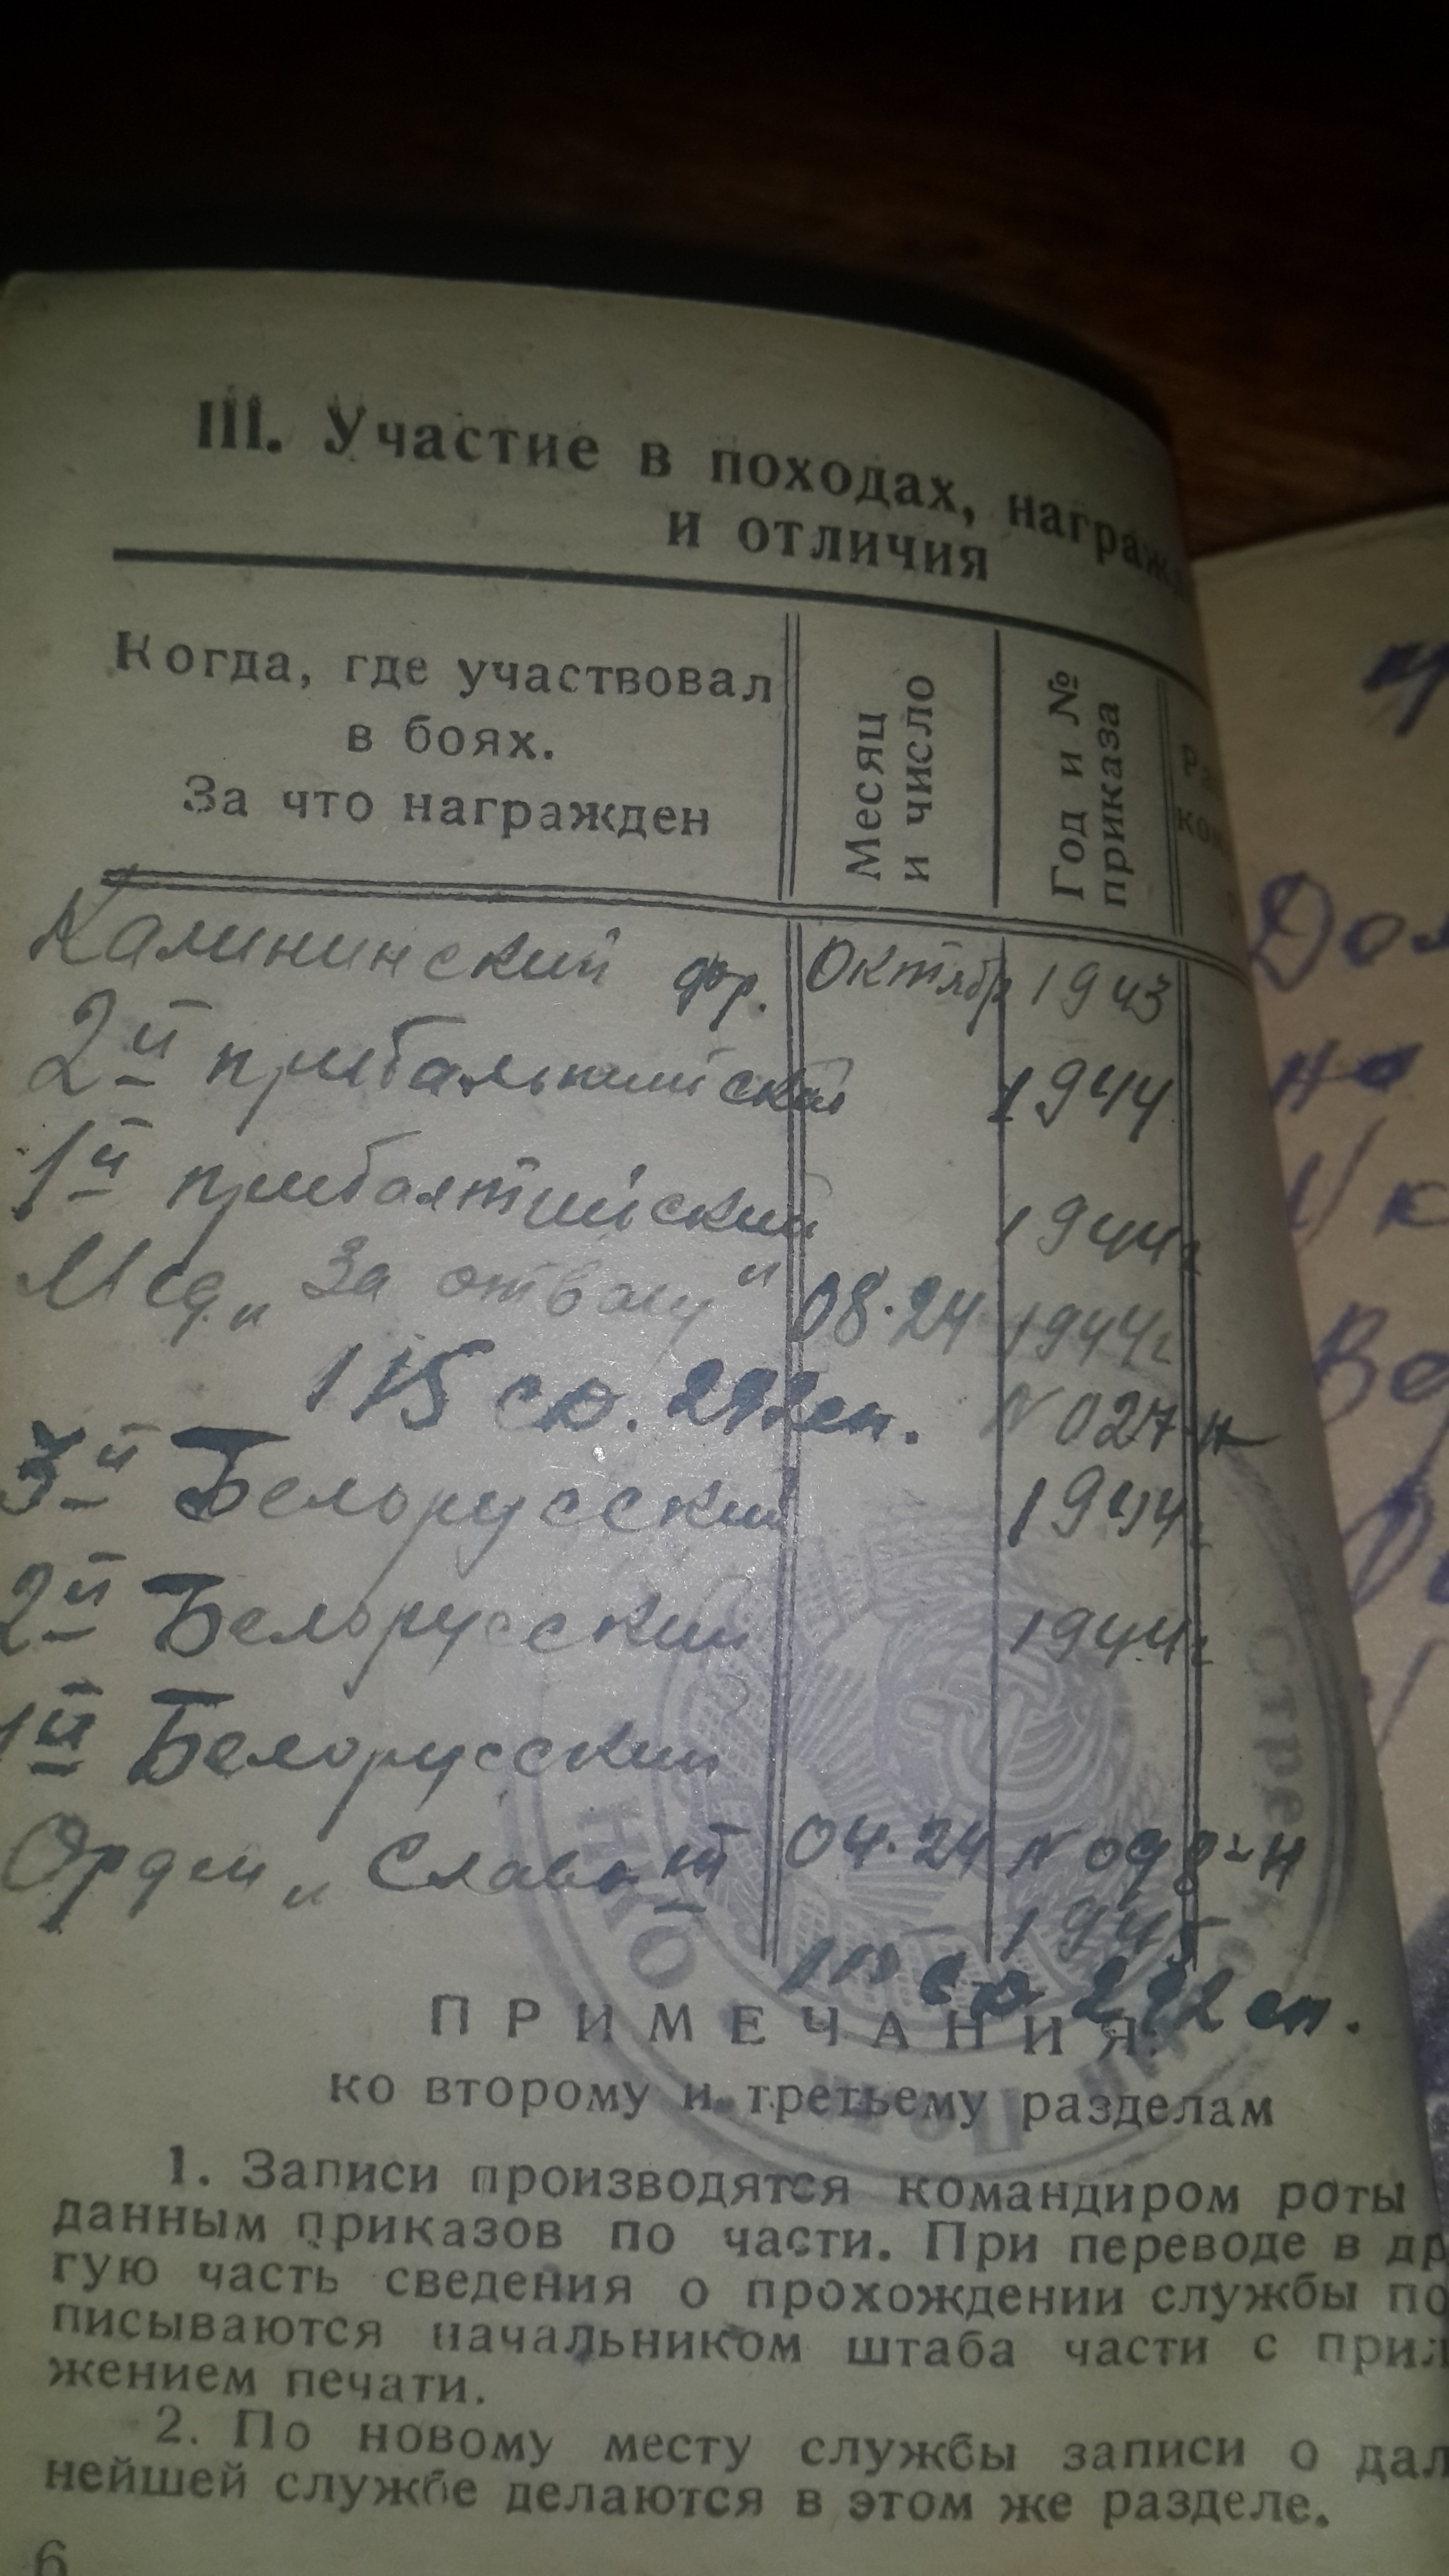 III. Участие в походах, награж
и отличия
Когда, где участвовал
в боях.
За что награжден
Месяц
и число
Год и №
приказа
Калининский фр. Октябр 1943
2й прибалтийский 1944
1й прибалтийский 1944г
Мед. „За отвагу" 08.24 1944г
115 сд. 292 сп. N 027-н
3й Белорусский 1944г
2й Белорусский 1944г
1й Белорусский
Орден „Славы III 04.24
1945
сд 292 сп.
ПРИМЕЧАНИЯ
ко второму и третьему разделам
1. Записи производятся командиром роты
данным приказов по части. При переводе в др
гую часть сведения о прохождении службы по
писываются начальником штаба части с прил
жением печати.
2. По новому месту службы записи о дал
нейшей службе делаются в этом же разделе.
6